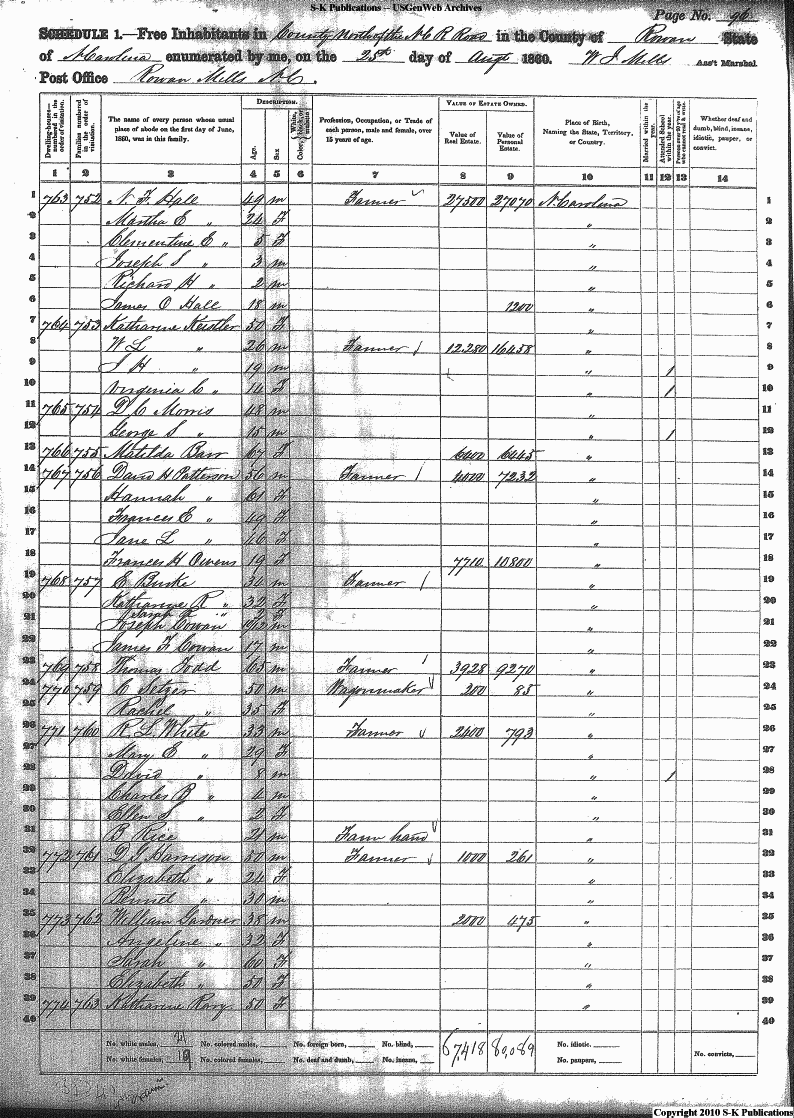 S-K Publications -- USGenWeb Archives
Page No. 96
SCHEDULE 1.—Free Inhabitants in County North of the N C R Road in the County of Rowan State
of N Carolina enumerated by me, on the 25th day of Augt 1860. W J Mills Ass't Marshal
Post Office Rowan Mills N C.
Dwelling-houses numbered in the order of visitation. Families numbered in the order of visitation. The name of every person whose usual place of abode on the first day of June, 1860, was in this family. DESCRIPTION. Age. Sex. Color, White, black, or mulatto. Profession, Occupation, or Trade of each person, male and female, over 15 years of age. VALUE OF ESTATE OWNED. Value of Real Estate. Value of Personal Estate. Place of Birth, Naming the State, Territory, or Country. Married within the year. Attended School within the year. Whether deaf and dumb, blind, insane, idiotic, pauper, or convict.
1 2 3 4 5 6 7 8 9 10 11 12 13 14
1 763 752 N. F. Hall 49 m Farmer 27500 27070 N. Carolina 1
2 Martha E " 24 F " 2
3 Clementine E " 5 F " 3
4 Joseph S " 3 m " 4
5 Richard H " 2 m " 5
6 James O Hall 18 m 1200 " 6
7 764 753 Katharine Keistler 50 F " 7
8 W L " 26 m Farmer 12280 16458 " 8
9 J H " 19 m " 1 9
10 Virginia C " 14 F " 1 10
11 765 754 D C Morris 48 m " 11
12 George S " 15 m " 1 12
13 766 755 Matilda Barr 67 F 6400 6445 " 13
14 767 756 David H Patterson 56 m Farmer 4000 7232 " 14
15 Hannah " 61 F " 15
16 Frances E " 49 F " 16
17 Jane L " 46 F " 17
18 Frances H Owens 19 F 7710 10800 " 18
19 768 757 E Burke 34 m Farmer " 19
20 Katharine R " 32 F " 20
Sarah " 2 F
21 Joseph Cowan m " 21
22 James F Cowan 17 m " 22
23 769 758 Thomas Todd 65 m Farmer 3928 9270 " 23
24 770 759 C Setzer 50 m Wagonmaker 200 85 " 24
25 Rachel " 35 F " 25
26 771 760 R. L. White 33 m Farmer 2400 793 " 26
27 Mary E " 29 F " 27
28 David " 8 m " 1 28
29 Charles B " 4 m " 29
30 Ellen S " 2 F " 30
31 B Rice 21 m Farm hand " 31
32 772 761 D. G. Harrison 50 m Farmer 1000 261 " 32
33 Elizabeth " 24 F " 33
34 " 30 m " 34
35 773 762 William Gardner 38 m 2000 475 " 35
36 Angeline " 32 F " 36
37 Sarah " 60 F " 37
38 Elizabeth " 50 F " 38
39 774 763 Katharine Rary 50 F " 39
40 40
No. white males, 21 No. colored males, No. foreign born, No. blind, 67,418 80,089 No. idiotic, No. convicts,
No. white females, 19 No. colored females, No. deaf and dumb, No. insane, No. paupers,
Copyright 2010 S-K Publications